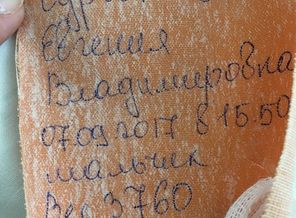 Евгения
Владимировна
07.09.2017 в 15.50
мальчик
Вес 3760